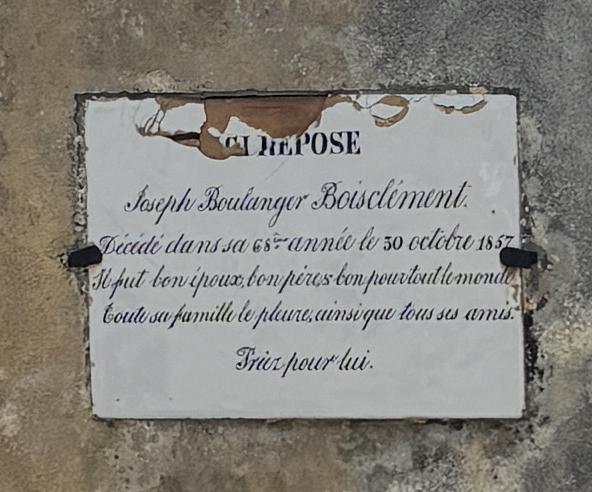 CI REPOSE
Joseph Boulanger Boisclément.
Décédé dans sa 68ème année le 30 octobre 1857
Il fut bon époux, bon père, bon pour tout le monde
Toute sa famille le pleure, ainsi que tous ses amis.
Priez pour lui.